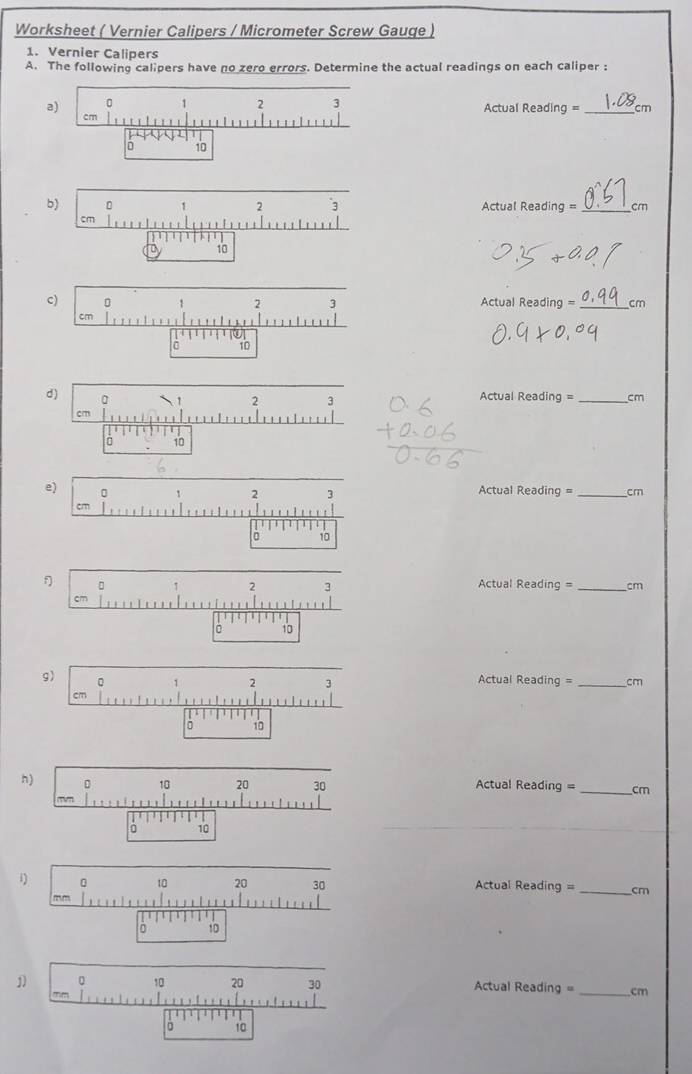 Worksheet ( Vernier Calipers / Micrometer Screw Gauge )
1. Vernier Calipers
A. The following calipers have no zero errors. Determine the actual readings on each caliper :
a) 0 1 2 3 Actual Reading = 1.08 cm
cm
0 10
b) 0 1 2 3 Actual Reading = 0.57 cm
cm
0 10
0.5 + 0.07
c) 0 1 2 3 Actual Reading = 0.99 cm
cm
0 10
0.9 + 0.09
d) 0 1 2 3 Actual Reading = ______cm
cm
0 10
0.6
+0.06
0.66
6
e) 0 1 2 3 Actual Reading = ______cm
cm
0 10
f) 0 1 2 3 Actual Reading = ______cm
cm
0 10
g) 0 1 2 3 Actual Reading = ______cm
cm
0 10
h) 0 10 20 30 Actual Reading = ______cm
mm
0 10
i) 0 10 20 30 Actual Reading = ______cm
mm
0 10
j) 0 10 20 30 Actual Reading = ______cm
mm
0 10